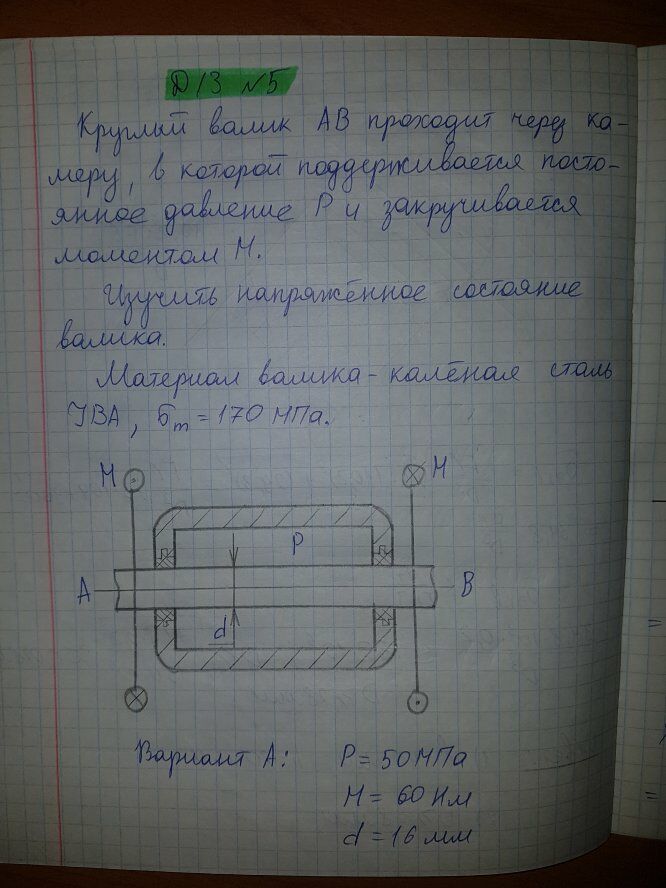 ДЗ №5
Круглый валик АВ проходит через ка-
меру, в которой поддерживается посто-
янное давление Р и закручивается
моментом М.
Изучить напряжённое состояние
валика.
Материал валика - калёная сталь
У8А, σт = 170 МПа.
М М
Р
А В
d
Вариант А: Р = 50 МПа
М = 60 Нм
d = 16 мм